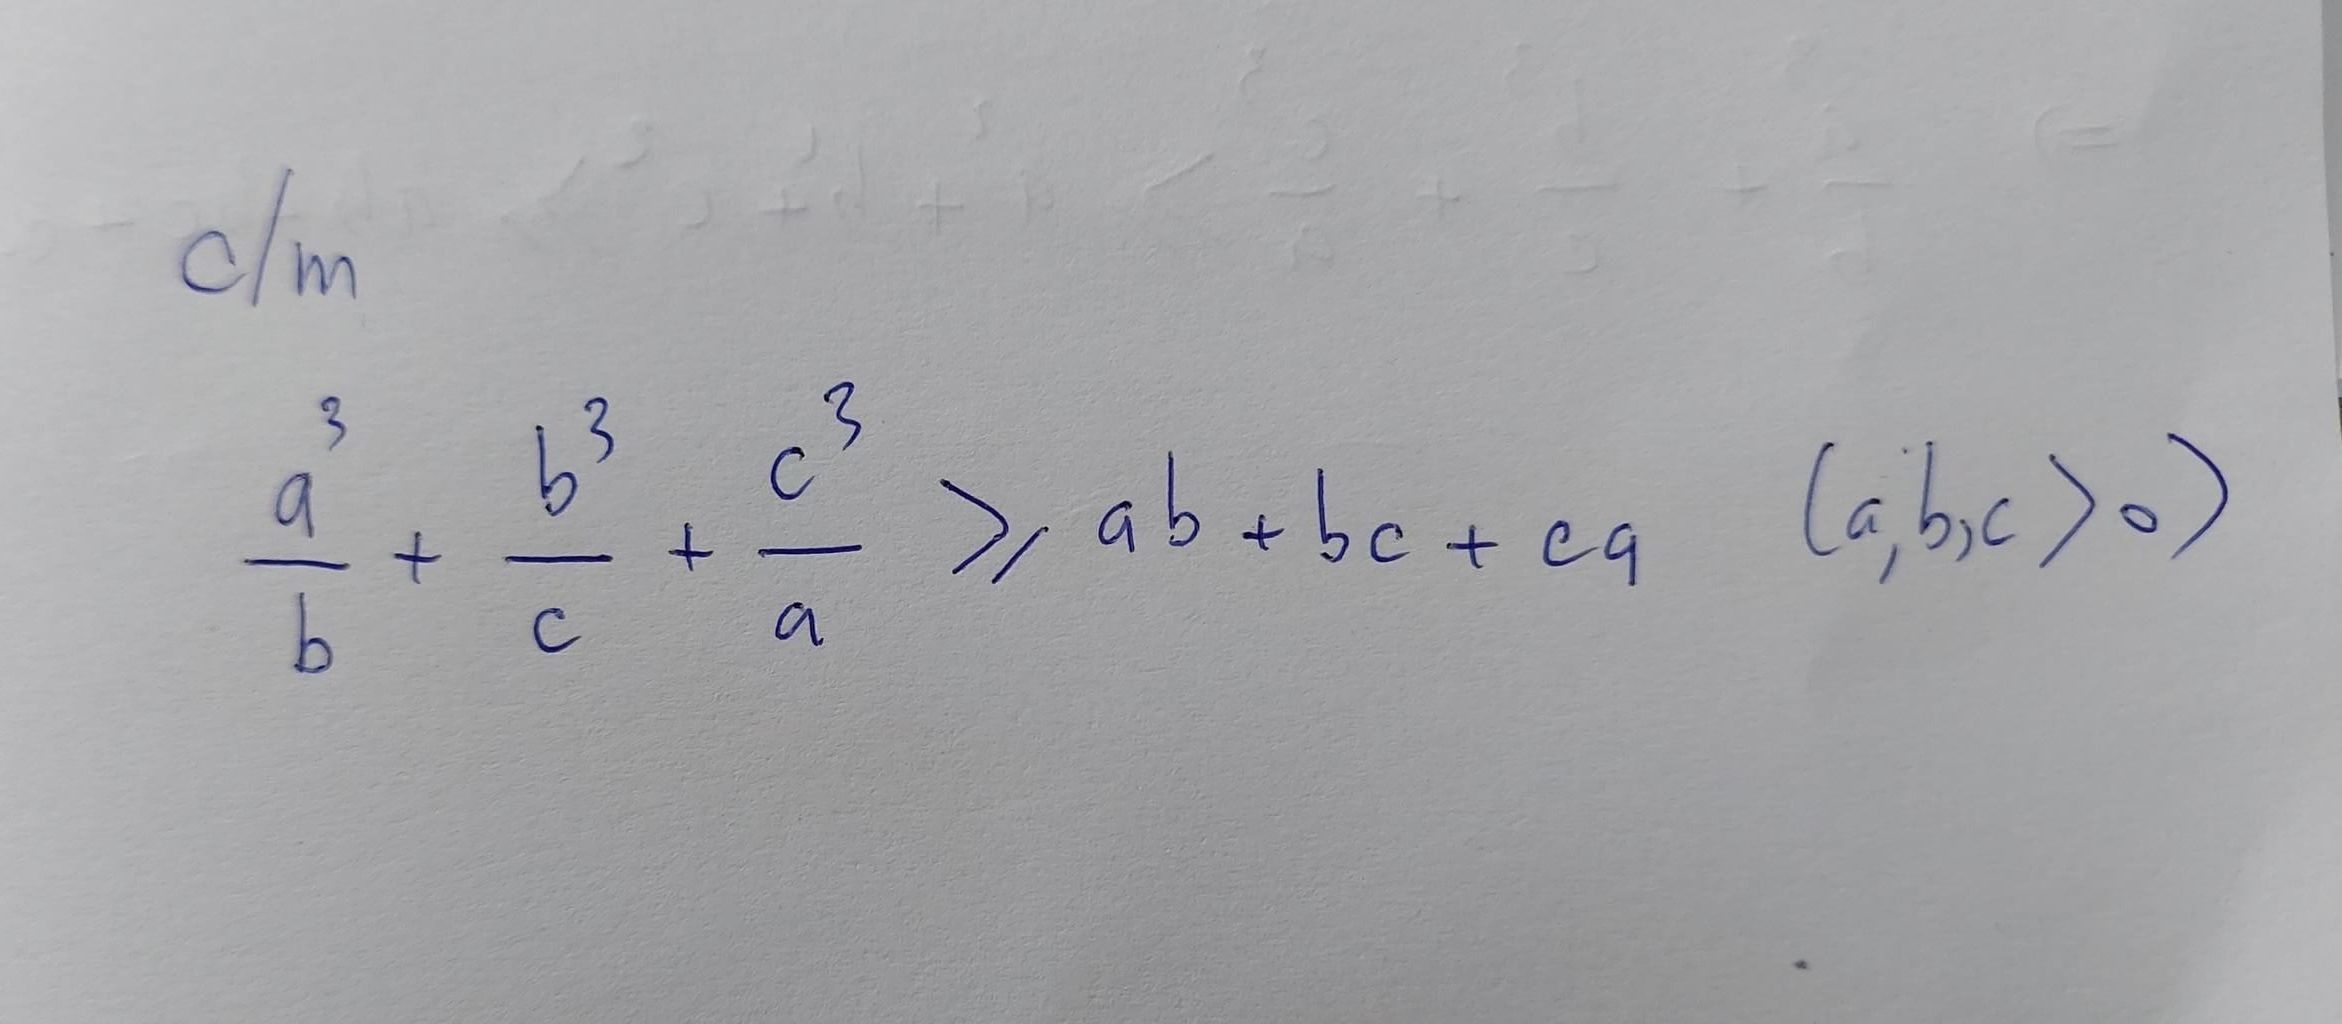 c/m
a³/b + b³/c + c³/a ⩾ ab + bc + ca (a,b,c > 0)